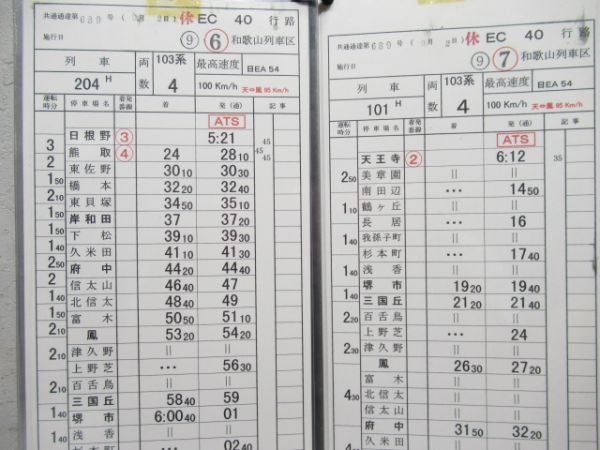 共通通達第689号 (3月2日) 休 EC 40 行路
施行日 ⑨ ⑥ 和歌山列車区
列車 両数 103系 最高速度 目EA 54
204H 4 100 Km/h 天⇔鳳 95 Km/h
運転時分 停車場名 着発番線 着 発(通) 記事
ATS
日根野 ③ 5:21 45
3 熊取 ④ 24 28 10 45 45
2 東佐野 30 10 30 30
1 50 橋本 32 20 32 40
2 10 東貝塚 34 50 35 10
1 50 岸和田 37 37 20
1 50 下松 39 10 39 30
1 40 久米田 41 10 41 30
2 50 府中 44 20 44 40
2 信太山 46 40 47
1 40 北信太 48 40 49
1 50 富木 50 50 51 10
2 10 鳳 53 20 54 20
津久野 || ||
2 10 上野芝 ・・・ 56 30
百舌鳥 || ||
2 10 三国丘 58 40 59
1 40 堺市 6:00 40 01
浅香 || ||
1 40 杉本町 ・・・ 02 40
共通通達第689号 (3月2日) 休 EC 40 行路
施行日 ⑨ ⑦ 和歌山列車区
列車 両数 103系 最高速度 目EA 54
101H 4 100 Km/h 天⇔鳳 95 Km/h
運転時分 停車場名 着発番線 着 発(通) 記事
ATS
天王寺 ② 6:12 35
美章園 || ||
2 50 南田辺 ・・・ 14 50
鶴ヶ丘 || ||
1 10 長居 ・・・ 16
我孫子町 || ||
1 40 杉本町 ・・・ 17 40
浅香 || ||
1 40 堺市 19 20 19 40
1 40 三国丘 21 20 21 40
百舌鳥 || ||
2 20 上野芝 ・・・ 24
津久野 || ||
2 30 鳳 26 30 27 20
富木 || ||
北信太 || ||
4 30 信太山 || ||
府中 31 50 32 20
久米田 || ||